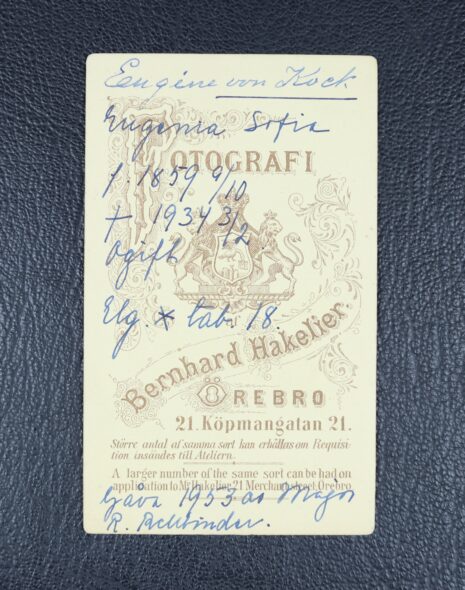 Eugéne von Kock
Eugenia Sofia
FOTOGRAFI
f. 1859 9/10
† 1934 3/2
Ogift
Elg. tab. 18.
Bernhard Hakelier.
ÖREBRO
21. Köpmangatan 21.
Större antal af samma sort kan erhållas om Requisi
tion insändes till Atelieren.
A larger number of the same sort can be had on
application to Mr Hakelier 21 Merchantstreet Örebro
Gåva 1953 av Major
R.